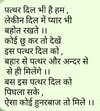 पत्थर दिल भी है हम ,
लेकीन दिल में प्यार भी
बहोत रखते ।।
कोई छु कर तो देखें
इस पत्थर दिल को ,
बहार से पत्थर और अन्दर से
से ही मिलेंगे ।।
बस इस पत्थर दिल को
पिघला सके ,
ऐसा कोई हुनरबाज तो मिले ।।